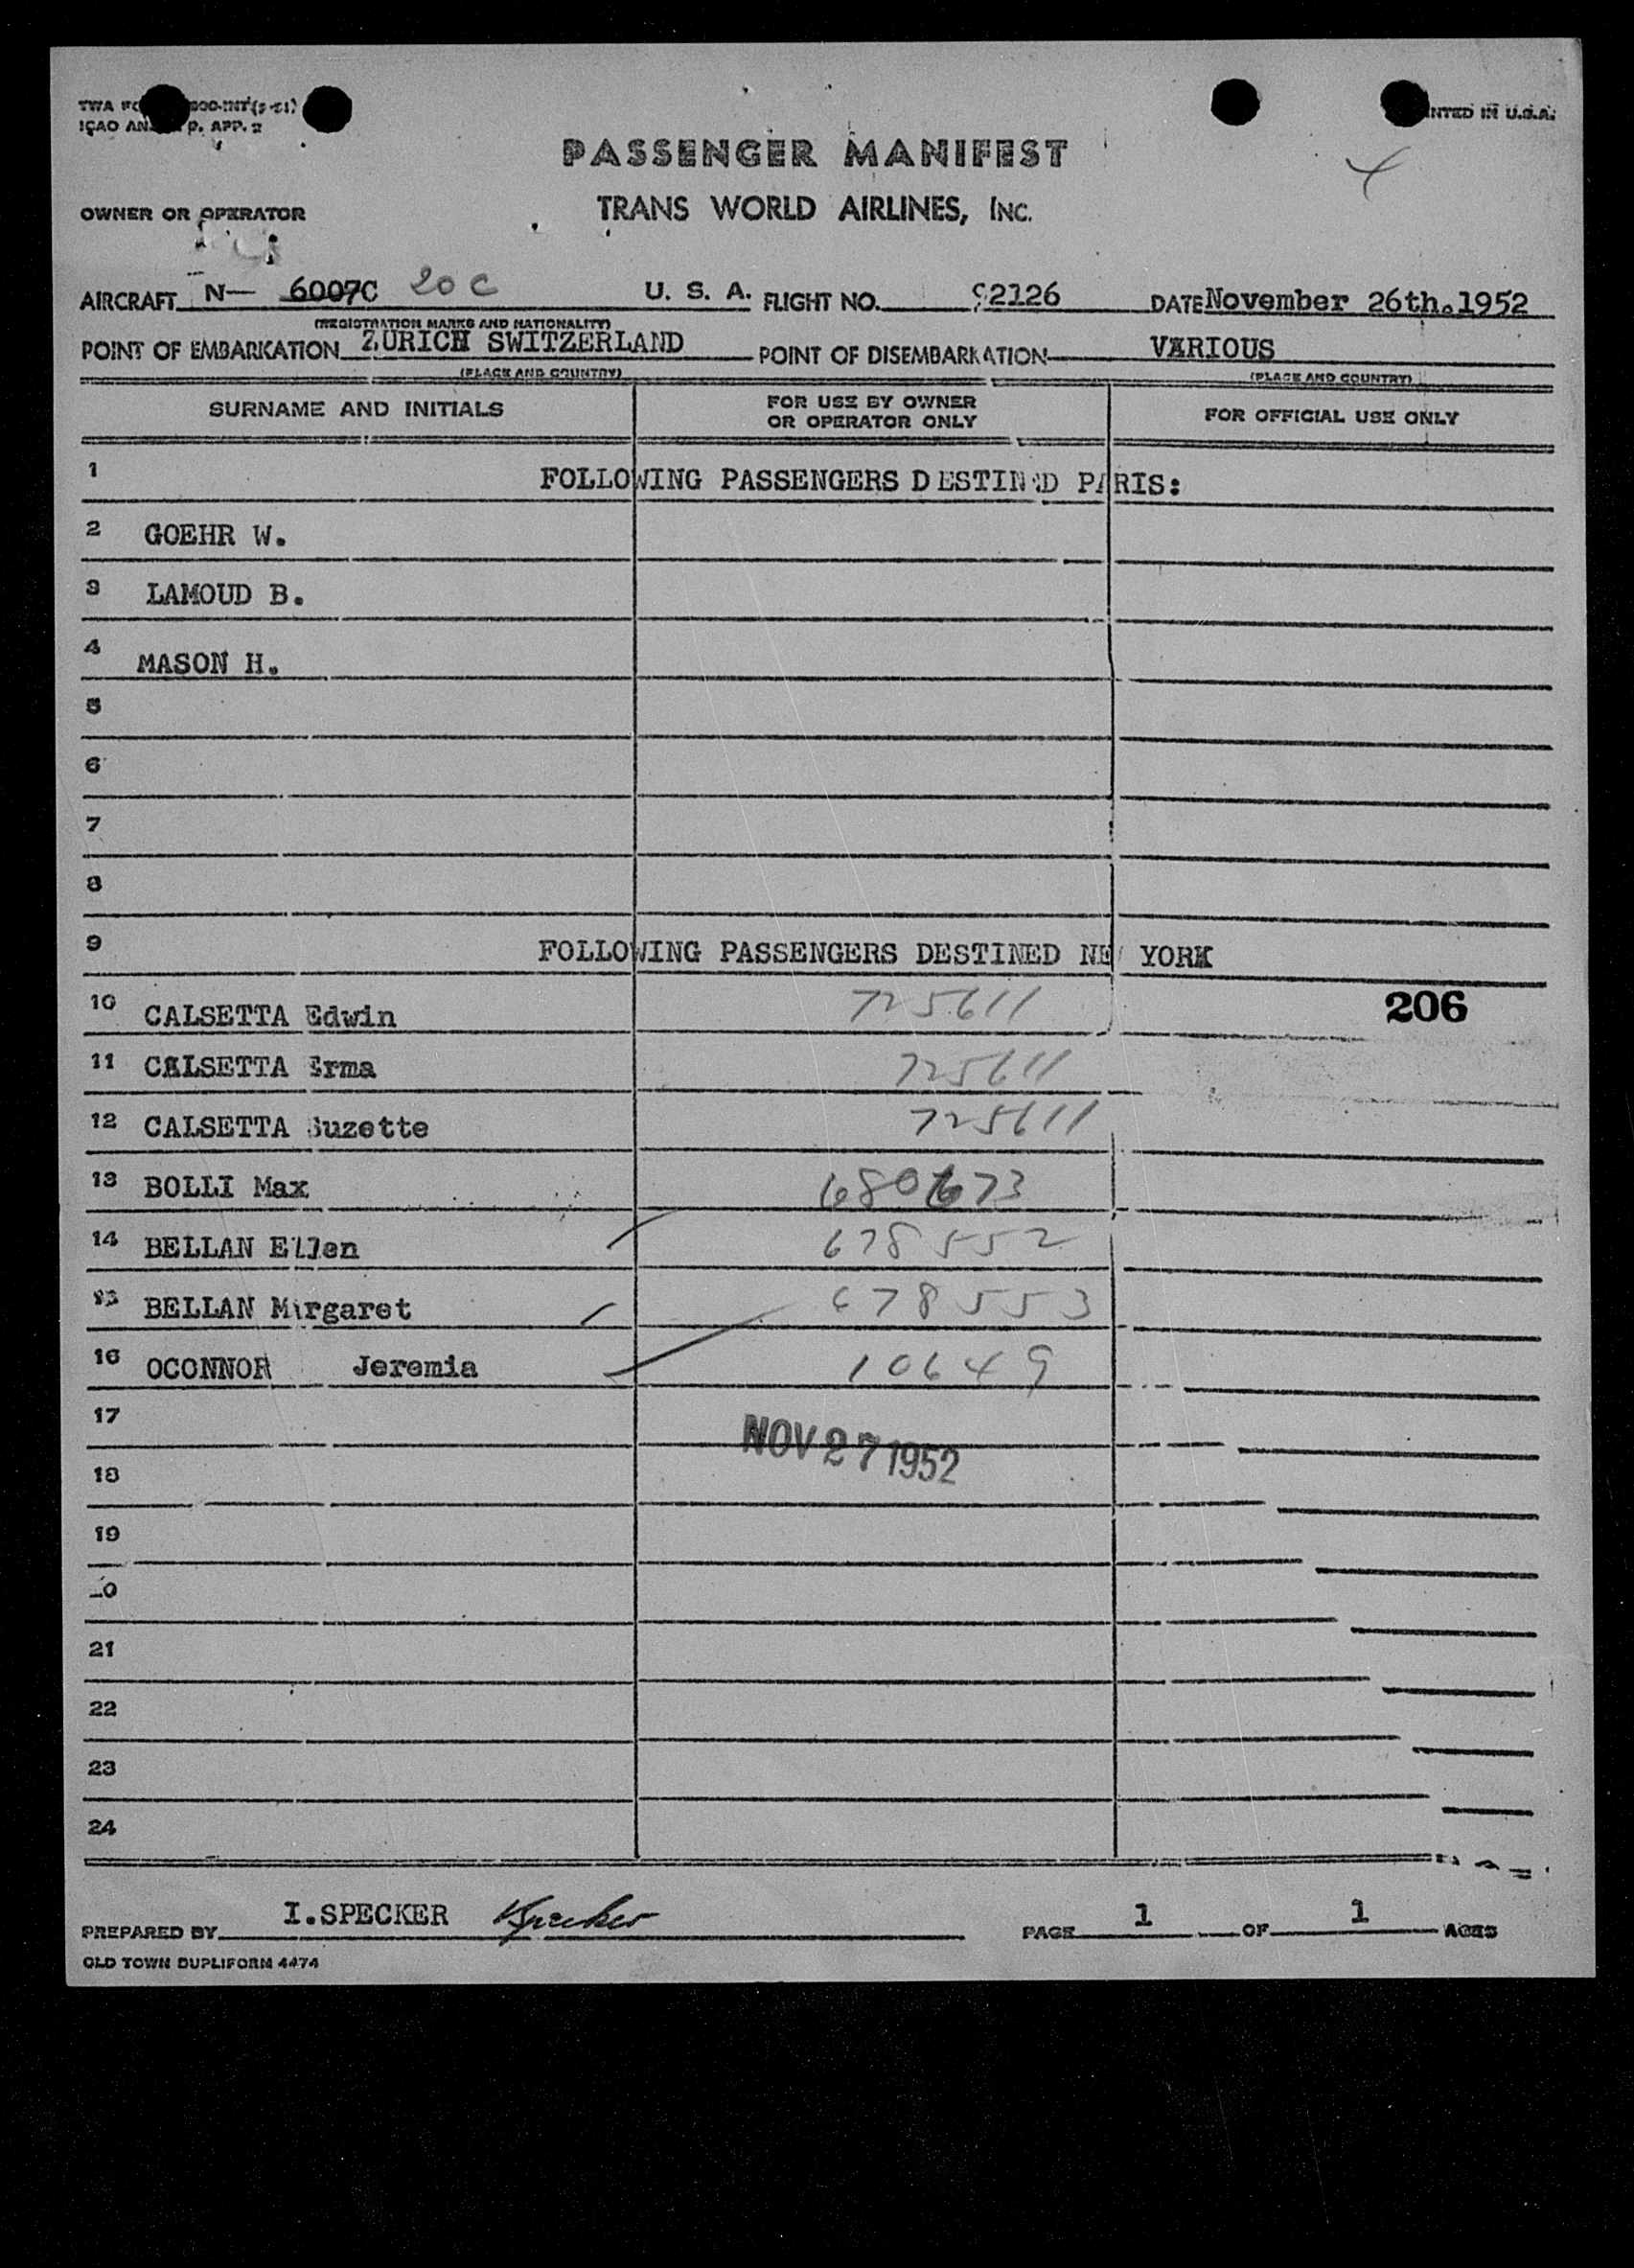 TWA FO 800-INT(5-51)
ICAO AN P. APP. 2
PRINTED IN U.S.A.
PASSENGER MANIFEST
OWNER OR OPERATOR TRANS WORLD AIRLINES, INC.
AIRCRAFT N— 6007C 20C U. S. A. FLIGHT NO. 92126 DATE November 26th.1952
(REGISTRATION MARKS AND NATIONALITY)
POINT OF EMBARKATION ZURICH SWITZERLAND POINT OF DISEMBARKATION VARIOUS
(PLACE AND COUNTRY) (PLACE AND COUNTRY)
SURNAME AND INITIALS FOR USE BY OWNER OR OPERATOR ONLY FOR OFFICIAL USE ONLY
1 FOLLOWING PASSENGERS DESTINED PARIS:
2 GOEHR W.
3 LAMOUD B.
4 MASON H.
5
6
7
8
9 FOLLOWING PASSENGERS DESTINED NEW YORK
10 CALSETTA Edwin 725611 206
11 CALSETTA Erma 725611
12 CALSETTA Suzette 725611
13 BOLLI Max 680673
14 BELLAN Ellen 678552
15 BELLAN Margaret 678553
16 OCONNOR Jeremia 10649
17
NOV 27 1952
18
19
20
21
22
23
24
PREPARED BY I.SPECKER Specker PAGE 1 OF 1 PAGES
OLD TOWN DUPLIFORM 4474